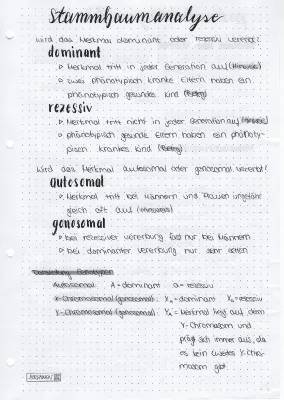 Stammbaumanalyse
Wird das Merkmal dominant oder rezessiv vererbt?
dominant
Merkmal tritt in jeder Generation auf (Hinweis)
zwei phänotypisch kranke Eltern haben ein
phänotypisch gesundes Kind (Beleg)
rezessiv
Merkmal tritt nicht in jeder Generation auf (Hinweis)
phänotypisch gesunde Eltern haben ein phänoty-
pisch krankes Kind (Beleg)
Wird das Merkmal autosomal oder gonosomal vererbt?
autosomal
Merkmal tritt bei Männern und Frauen ungefähr
gleich oft auf (Hinweis)
gonosomal
bei rezessiver Vererbung fast nur bei Männern
bei dominanter Vererbung nur sehr selten
Autosomal A = dominant a = rezessiv
X-Chromosomal (gonosomal) = dominant = rezessiv
Y-Chromosomal (gonosomal) = Merkmal liegt auf dem
Y-Chromosom und
prägt sich immer aus, da
es kein zweites Y-Chro-
mosom gibt